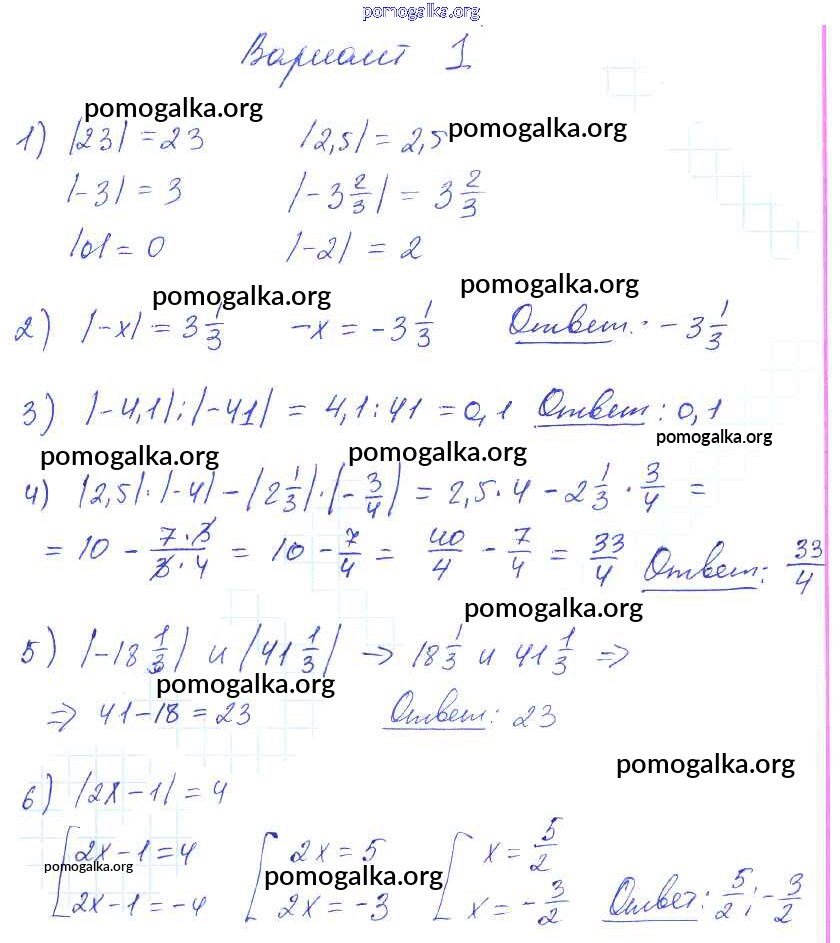 pomogalka.org
Вариант 1
pomogalka.org
1) |23| = 23 |2,5| = 2,5 pomogalka.org
|-3| = 3 |-3 2/3| = 3 2/3
|0| = 0 |-2| = 2
pomogalka.org pomogalka.org
2) |-x| = 3 1/3 -x = -3 1/3 Ответ: -3 1/3
3) |-4,1| : |-41| = 4,1 : 41 = 0,1 Ответ: 0,1
pomogalka.org pomogalka.org pomogalka.org
4) |2,5| · |-4| - |2 1/3| · |-3/4| = 2,5 · 4 - 2 1/3 · 3/4 =
= 10 - 7·3/3·4 = 10 - 7/4 = 40/4 - 7/4 = 33/4 Ответ: 33/4
pomogalka.org
5) |-18 1/3| и |41 1/3| → 18 1/3 и 41 1/3 ⇒
pomogalka.org
⇒ 41-18 = 23 Ответ: 23
pomogalka.org
6) |2x-1| = 4
[2x-1=4 [2x=5 [x=5/2
pomogalka.org pomogalka.org
2x-1=-4 2x=-3 x=-3/2 Ответ: 5/2; -3/2